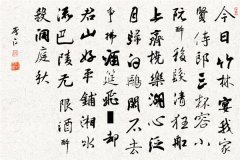 今日竹林宴我家
賢侍郎三杯容小
阮醉後發清狂船
上齊橈樂湖心泛
月歸白鷗閑不去
爭拂酒筵飛剗却
君山好平鋪湘水
流巴陵無限酒醉
殺洞庭秋